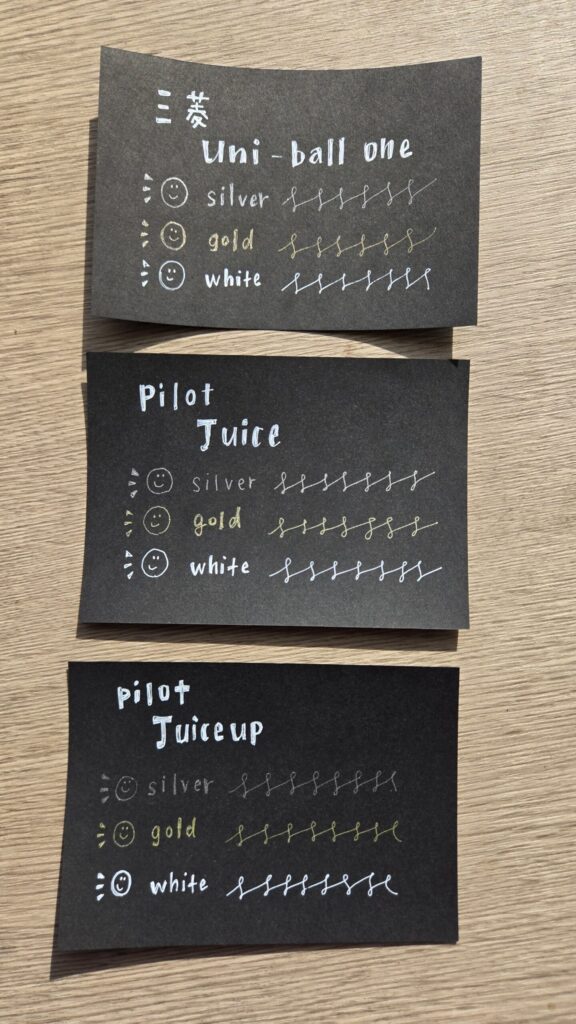 三菱
Uni-ball one
silver
gold
white
Pilot
Juice
silver
gold
white
pilot
Juice up
silver
gold
white